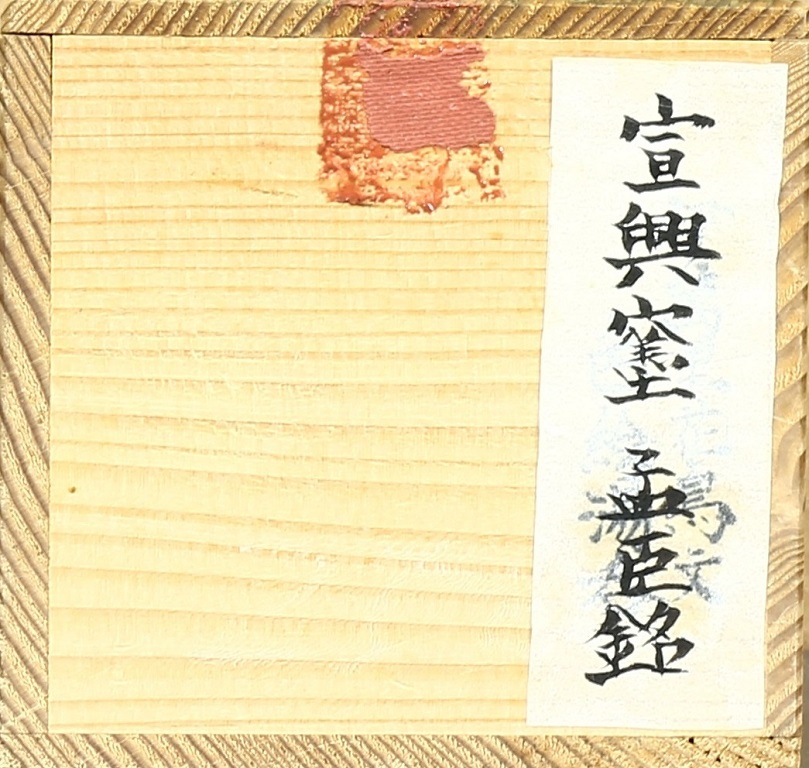 宣興窯 孟臣銘